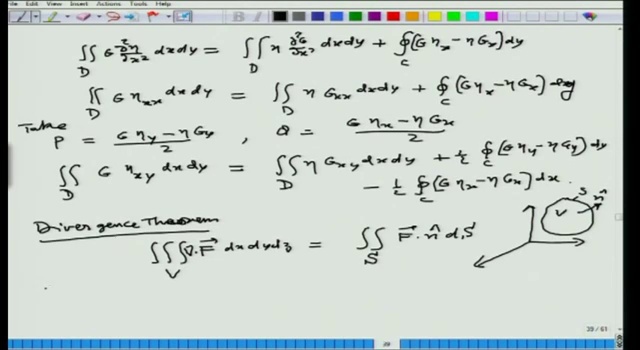 View Insert Actions Tools Help
∬_D G ∂²η/∂x² dxdy = ∬_D η ∂²G/∂x² dxdy + ∮_C (G η_x − η G_x) dy
∬_D G η_xx dxdy = ∬_D η G_xx dxdy + ∮_C (G η_x − η G_x) dy
Take P = (G η_y − η G_y)/2 , Q = (G η_x − η G_x)/2
∬_D G η_xy dxdy = ∬_D η G_xy dxdy + ½ ∮_C (G η_y − η G_y) dy
− ½ ∮_C (G η_x − η G_x) dx.
Divergence Theorem
∭_V ∇·F⃗ dxdydz = ∬_S F⃗·n̂ dS
V S n̂
29 / 61